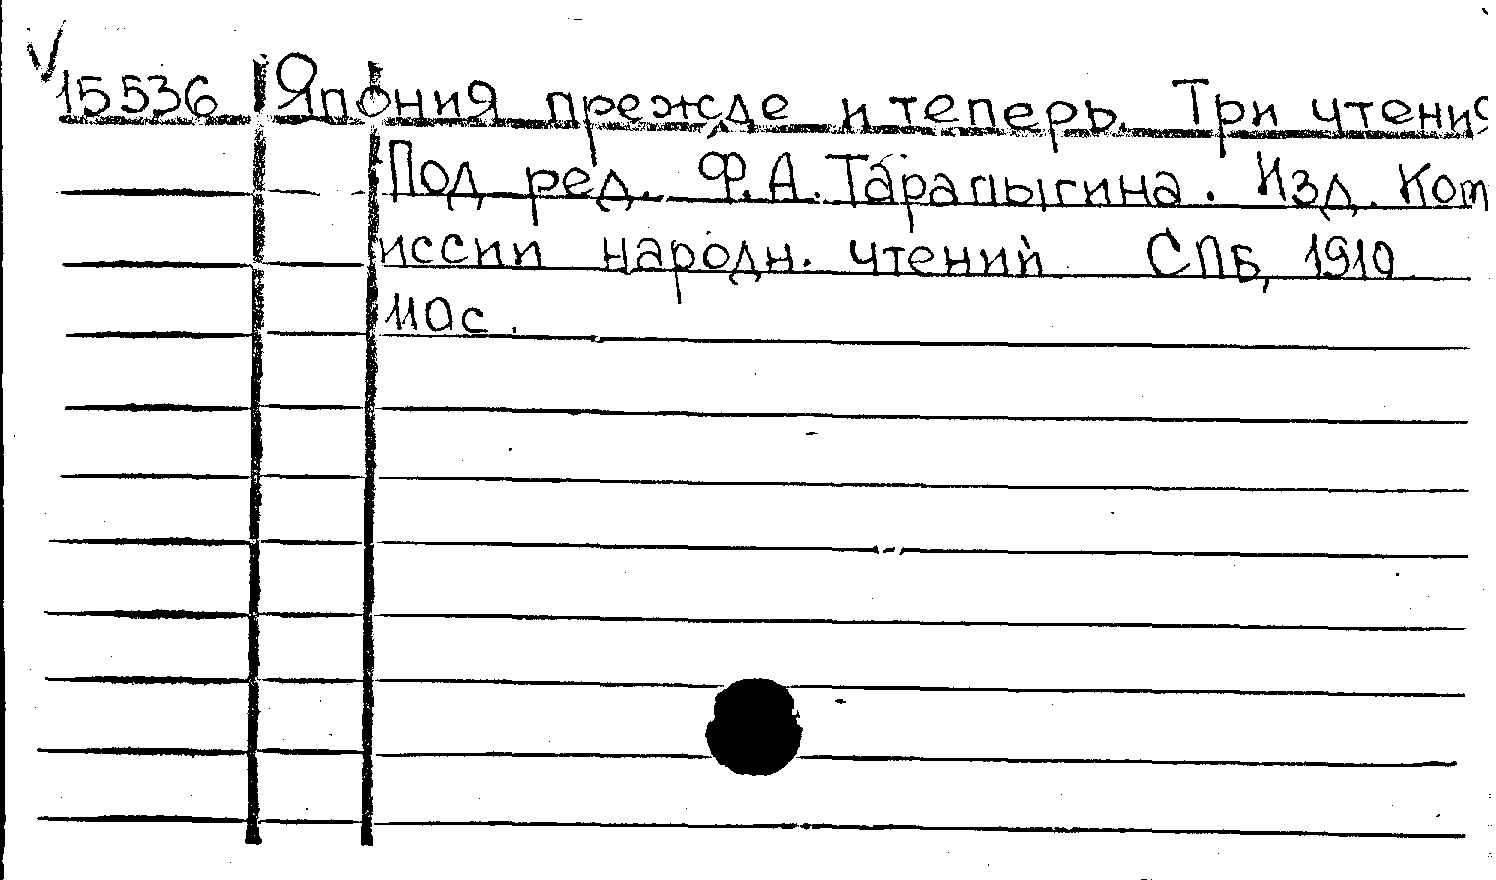 V
15536 Япония прежде и теперь. Три чтения
Под ред. Ф.А. Тарапыгина. Изд. Ком
иссии народн. чтений СПБ, 1910
110с.